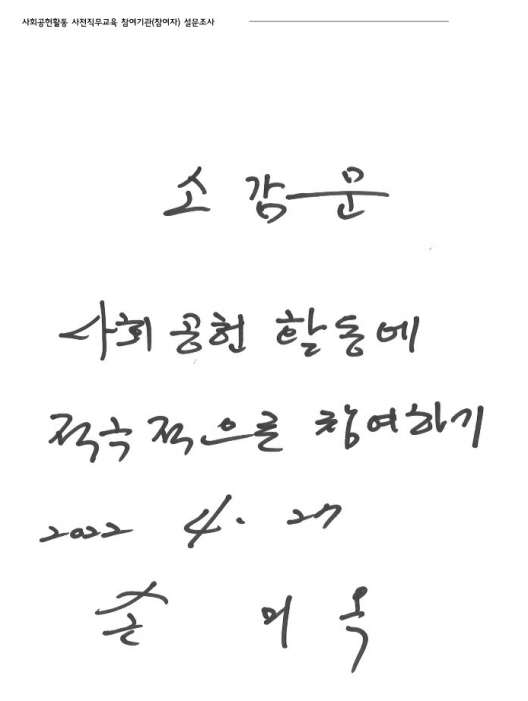 사회공헌활동 사전직무교육 참여기관(참여자) 설문조사
소감문
사회공헌 활동에
적극적으로 참여하기
2022 4. 27
손 미옥